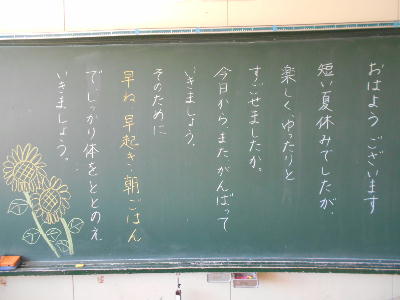 おはようございます
短い夏休みでしたが、
楽しく、ゆったりと
すごせましたか。
今日から、また、がんばって
いきましょう。
そのために
早ね、早起き、朝ごはん
で、しっかり体をととのえ
いきましょう。